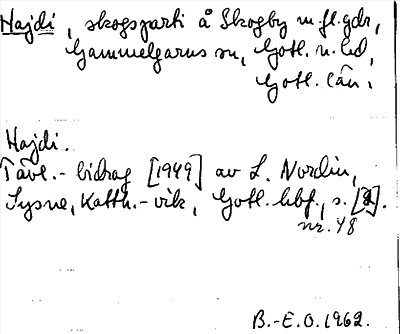 Hajdi, skogsparti å Skogby m.fl. gdr,
Gammelgarns sn, Gotl. n. hd,
Gotl. län.
Hajdi.
Tävl.-bidrag [1949] av L. Nordin,
Sysne, Katth.-vik, Gotl. hbf, s. [2].
nr. 48
B.-E.O. 1962.